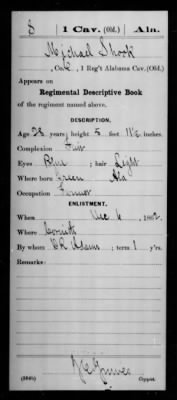 S | 1 Cav. (Old.) | Ala.
Michael Shook
, Co. , 1 Reg't Alabama Cav. (Old.)
Appears on
Regimental Descriptive Book
of the regiment named above.
DESCRIPTION.
Age 28 years; height 5 feet 11½ inches.
Complexion Fair
Eyes Blue ; hair Light
Where born Green Ala
Occupation Farmer
ENLISTMENT.
When Dec 6 , 1862.
Where Corinth
By whom ; term 1 y'rs.
Remarks:
Copyist.